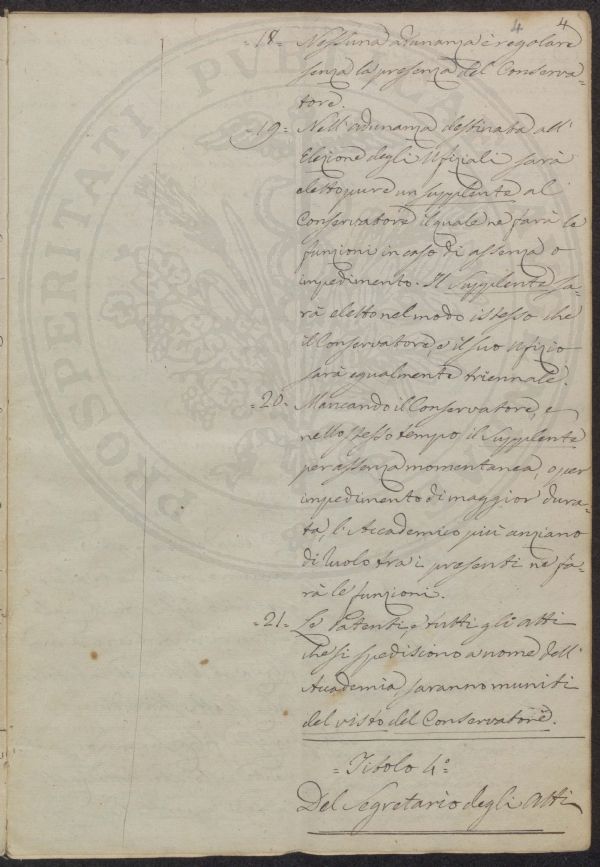 4 4
=18= Nessuna adunanza è regolare
senza la presenza del Conserva=
tore.
=19= Nell'adunanza destinata all'
Elezione degli Ufiziali sarà
eletto pure un supplente al
Conservatore il quale ne farà le
funzioni in caso di assenza o
impedimento. Il Supplente sa=
rà eletto nel modo istesso che
il Conservatore, e il suo Ufizio
sarà egualmente triennale.
=20= Mancando il Conservatore, e
nello stesso tempo il Supplente
per assenza momentanea, o per
impedimento di maggior dura=
ta, l'Accademico più anziano
di Ruolo tra i presenti ne fa=
rà le funzioni.
=21= Le Patenti, e tutti gli atti
che si spediscono a nome dell'
Accademia, saranno muniti
del visto del Conservatore.
=Titolo 4°
Del Segretario degli Atti
PROSPERITATI PVBLICAE